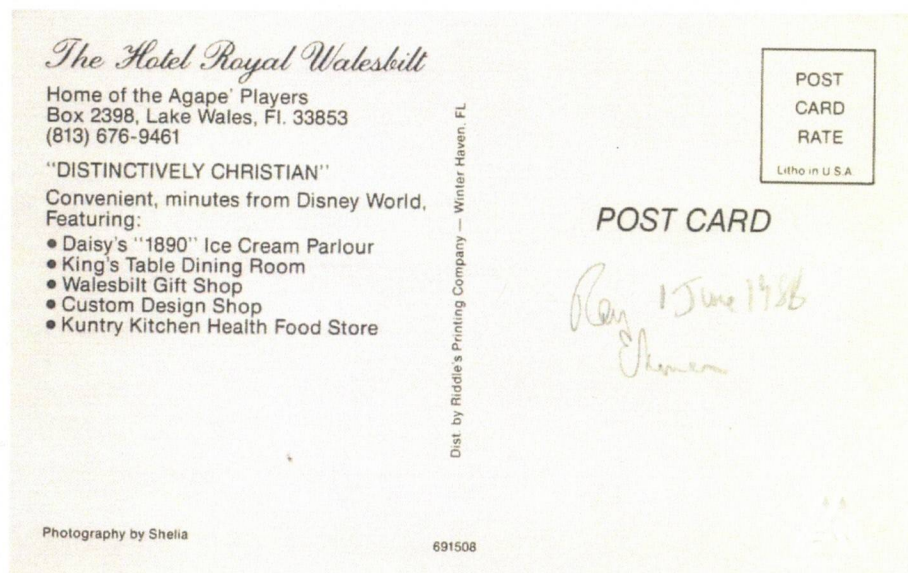 The Hotel Royal Walesbilt
Home of the Agape' Players
Box 2398, Lake Wales, Fl. 33853
(813) 676-9461
"DISTINCTIVELY CHRISTIAN"
Convenient, minutes from Disney World,
Featuring:
• Daisy's "1890" Ice Cream Parlour
• King's Table Dining Room
• Walesbilt Gift Shop
• Custom Design Shop
• Kuntry Kitchen Health Food Store
Photography by Shelia
Dist. by Riddle's Printing Company — Winter Haven, FL
691508
POST
CARD
RATE
Litho in U.S.A.
POST CARD
Ray 1 June